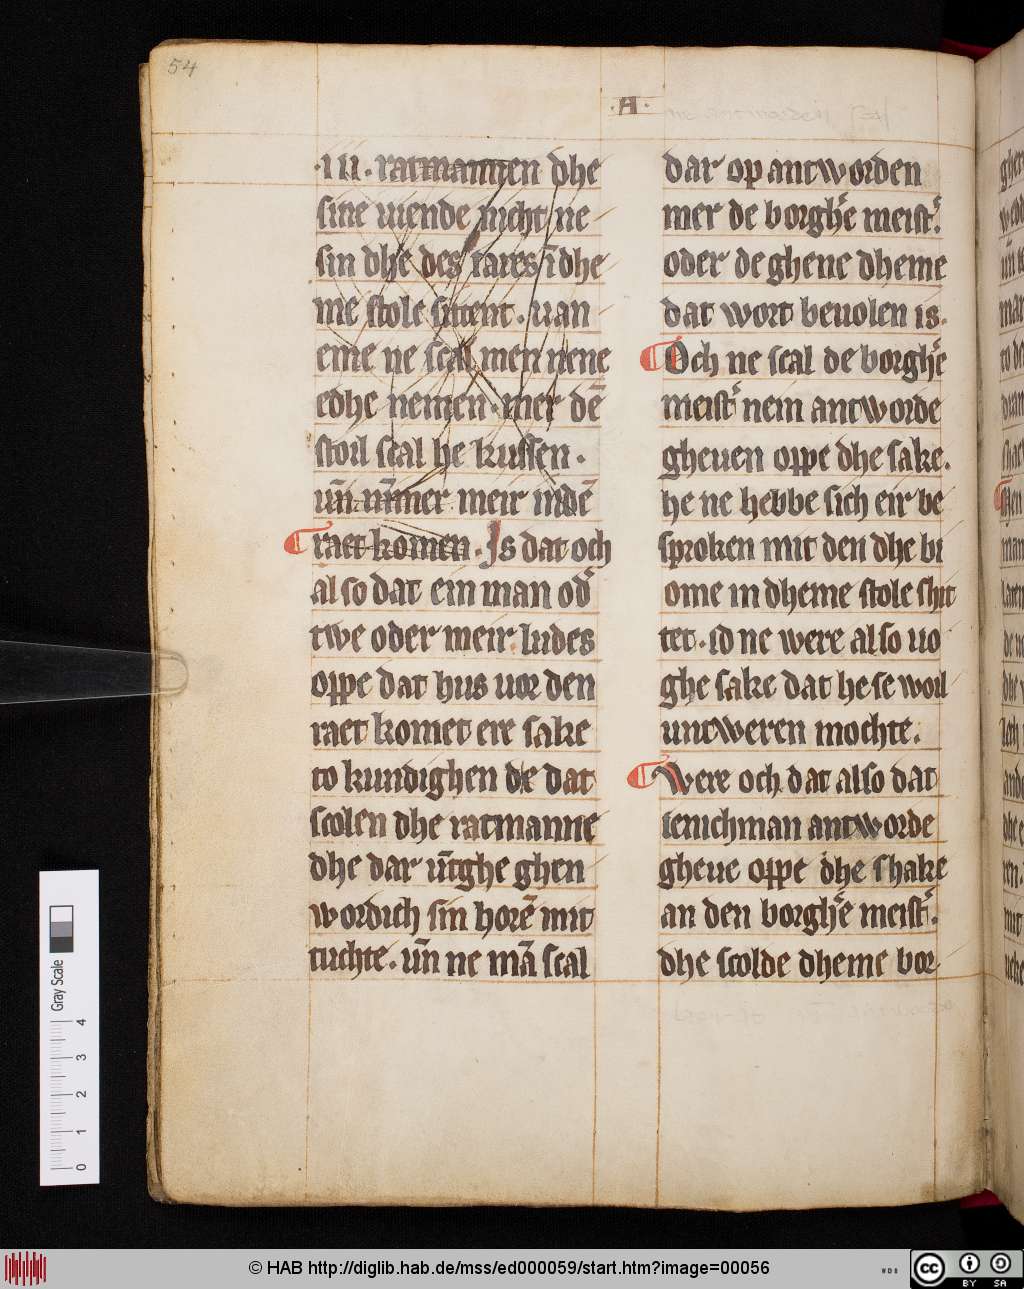 54
·A·
·III· ratmannen dhe
sine uiende nicht ne
sin dhe des rates ī dhe
me stole sittent · uan
eme ne scal men nene
edhe nemen · mer dē
stoil scal he kussen ·
un̄ um̄mer meir in dē
raet komen · Js dat och
al so dat ein man od᷑
twe oder meir ludes
oppe dat hus uor den
raet komet ere sake
to kundighen de dat
scolen dhe ratmanne
dhe dar un̄ghe ghen
wordich sin horē mit
tuchte · un̄ ne mā scal
dar op antworden
mer de borgh᷑e meist᷑.
oder de ghene dheme
dat wort beuolen is.
Och ne scal de borgh᷑e
meist᷑ nein antworde
gheuen oppe dhe sake.
he ne hebbe sich eir be
sproken mit den dhe bi
ome in dheme stole shit
tet · id ne were al so uo
ghe sake dat he se woil
untweren mochte.
Were och dat also dat
ienich man antworde
gheue oppe dhe shake
an den borgh᷑e meist᷑.
dhe scolde dheme bor
Gray Scale
4
3
2
1
0
© HAB http://diglib.hab.de/mss/ed000059/start.htm?image=00056
WDB
cc
BY SA